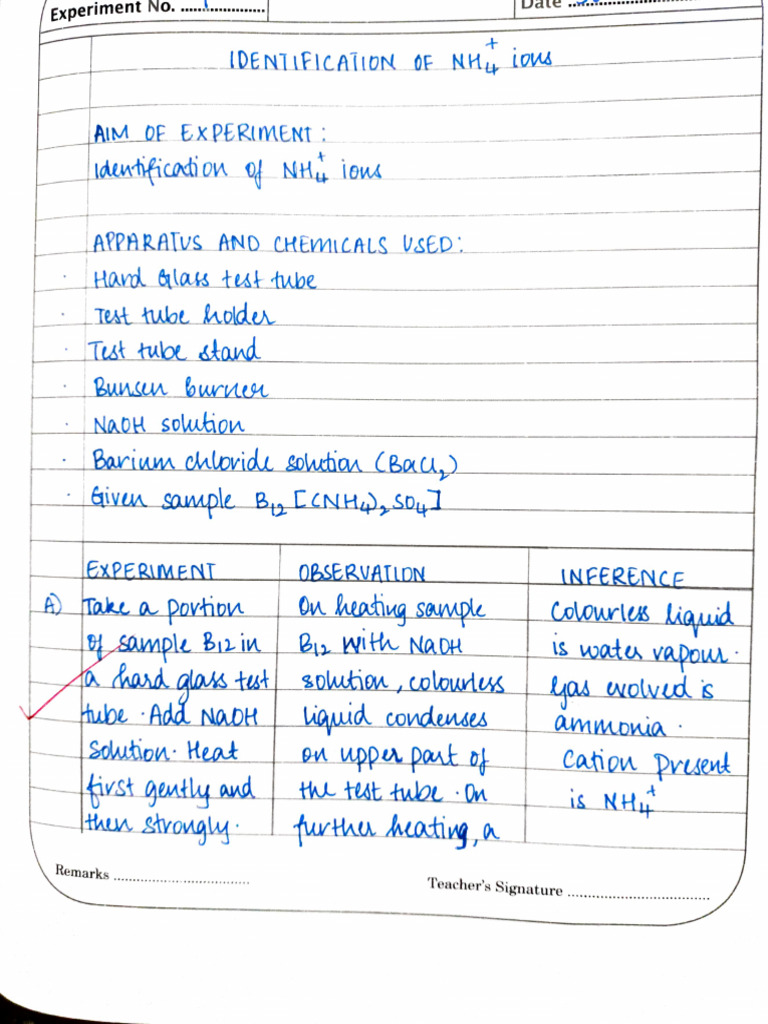 Experiment No. ........................
Date ........................
IDENTIFICATION OF NH₄⁺ ions
AIM OF EXPERIMENT:
Identification of NH₄⁺ ions
APPARATUS AND CHEMICALS USED:
· Hard Glass test tube
· Test tube holder
· Test tube stand
· Bunsen burner
· NaOH solution
· Barium chloride solution (BaCl₂)
· Given sample B₁₂ [(NH₄)₂SO₄]
EXPERIMENT OBSERVATION INFERENCE
A) Take a portion On heating sample Colourless liquid
of sample B₁₂ in B₁₂ with NaOH is water vapour.
a hard glass test solution, colourless Gas evolved is
tube. Add NaOH liquid condenses ammonia.
solution. Heat on upper part of Cation present
first gently and the test tube. On is NH₄⁺
then strongly. further heating, a
Remarks ........................
Teacher's Signature ........................